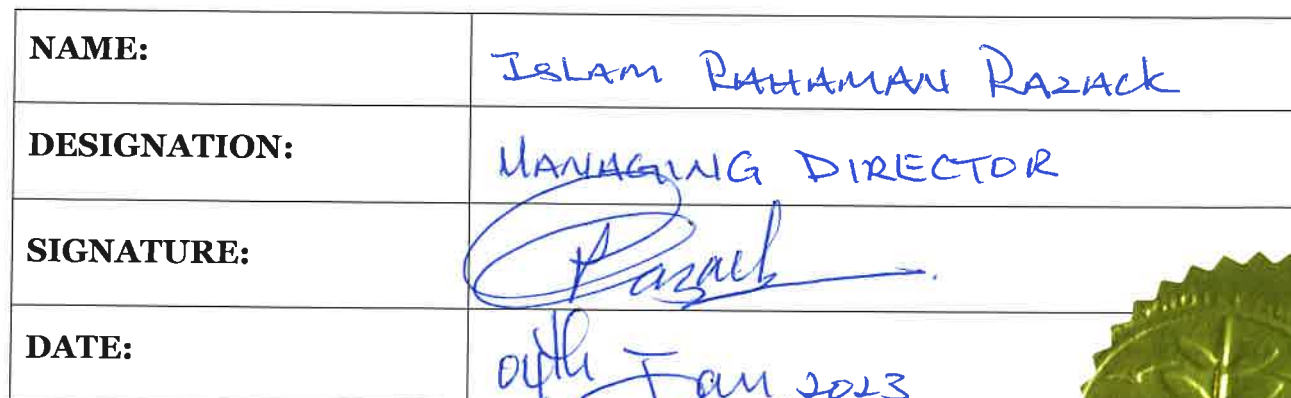 NAME: ISLAM RAHAMAN RAZACK
DESIGNATION: MANAGING DIRECTOR
SIGNATURE: Razack
DATE: 04th Jan 2023